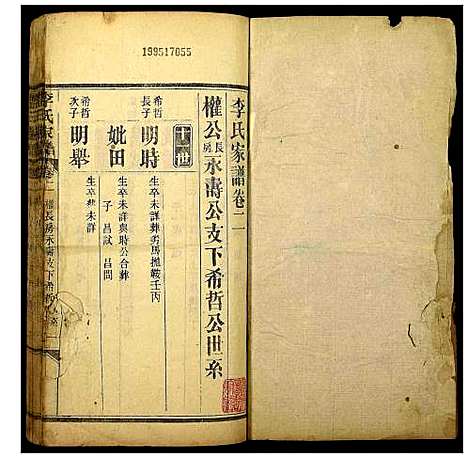 199517055
李氏家譜卷二
權公長房永壽公支下希哲公世系
十一世
希哲長子
明時
生卒未詳葬劣馬拋鞍壬丙
妣田
生卒未詳與時公合葬
子 昌試 昌問
希哲次子
明舉
生卒葬未詳
李氏家譜
卷二
權長房永壽支下希哲